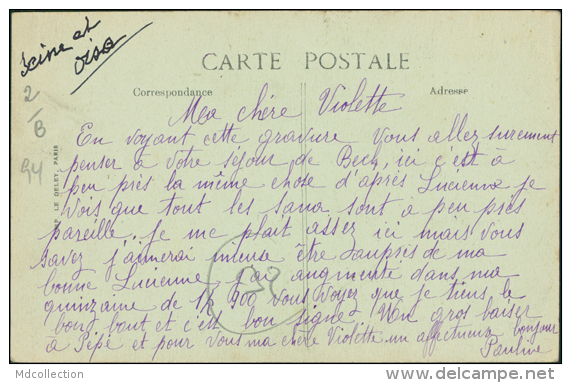 Seine et
Oise
CARTE POSTALE
Correspondance
Adresse
2
/
B
94
LE DELEY, PARIS
Ma chère Violette
En voyant cette gravure vous allez surement
penser à votre séjour de Bech, ici c'est à
peu près la même chose d'après Lucienne je
vois que tout les sana sont à peu près
pareille. je me plait assez ici mais vous
savez j'aimerai mieuse être dauprès de ma
bonne Lucienne j'ai augmenté dans ma
quinzaine de 1K 900 vous voyez que je tiens le
bon bout et c'est bon signe Un gros baiser
à Pépé et pour vous ma chère Violette un affectueux bonjour
Pauline
Mdcollection
www.delcampe.net